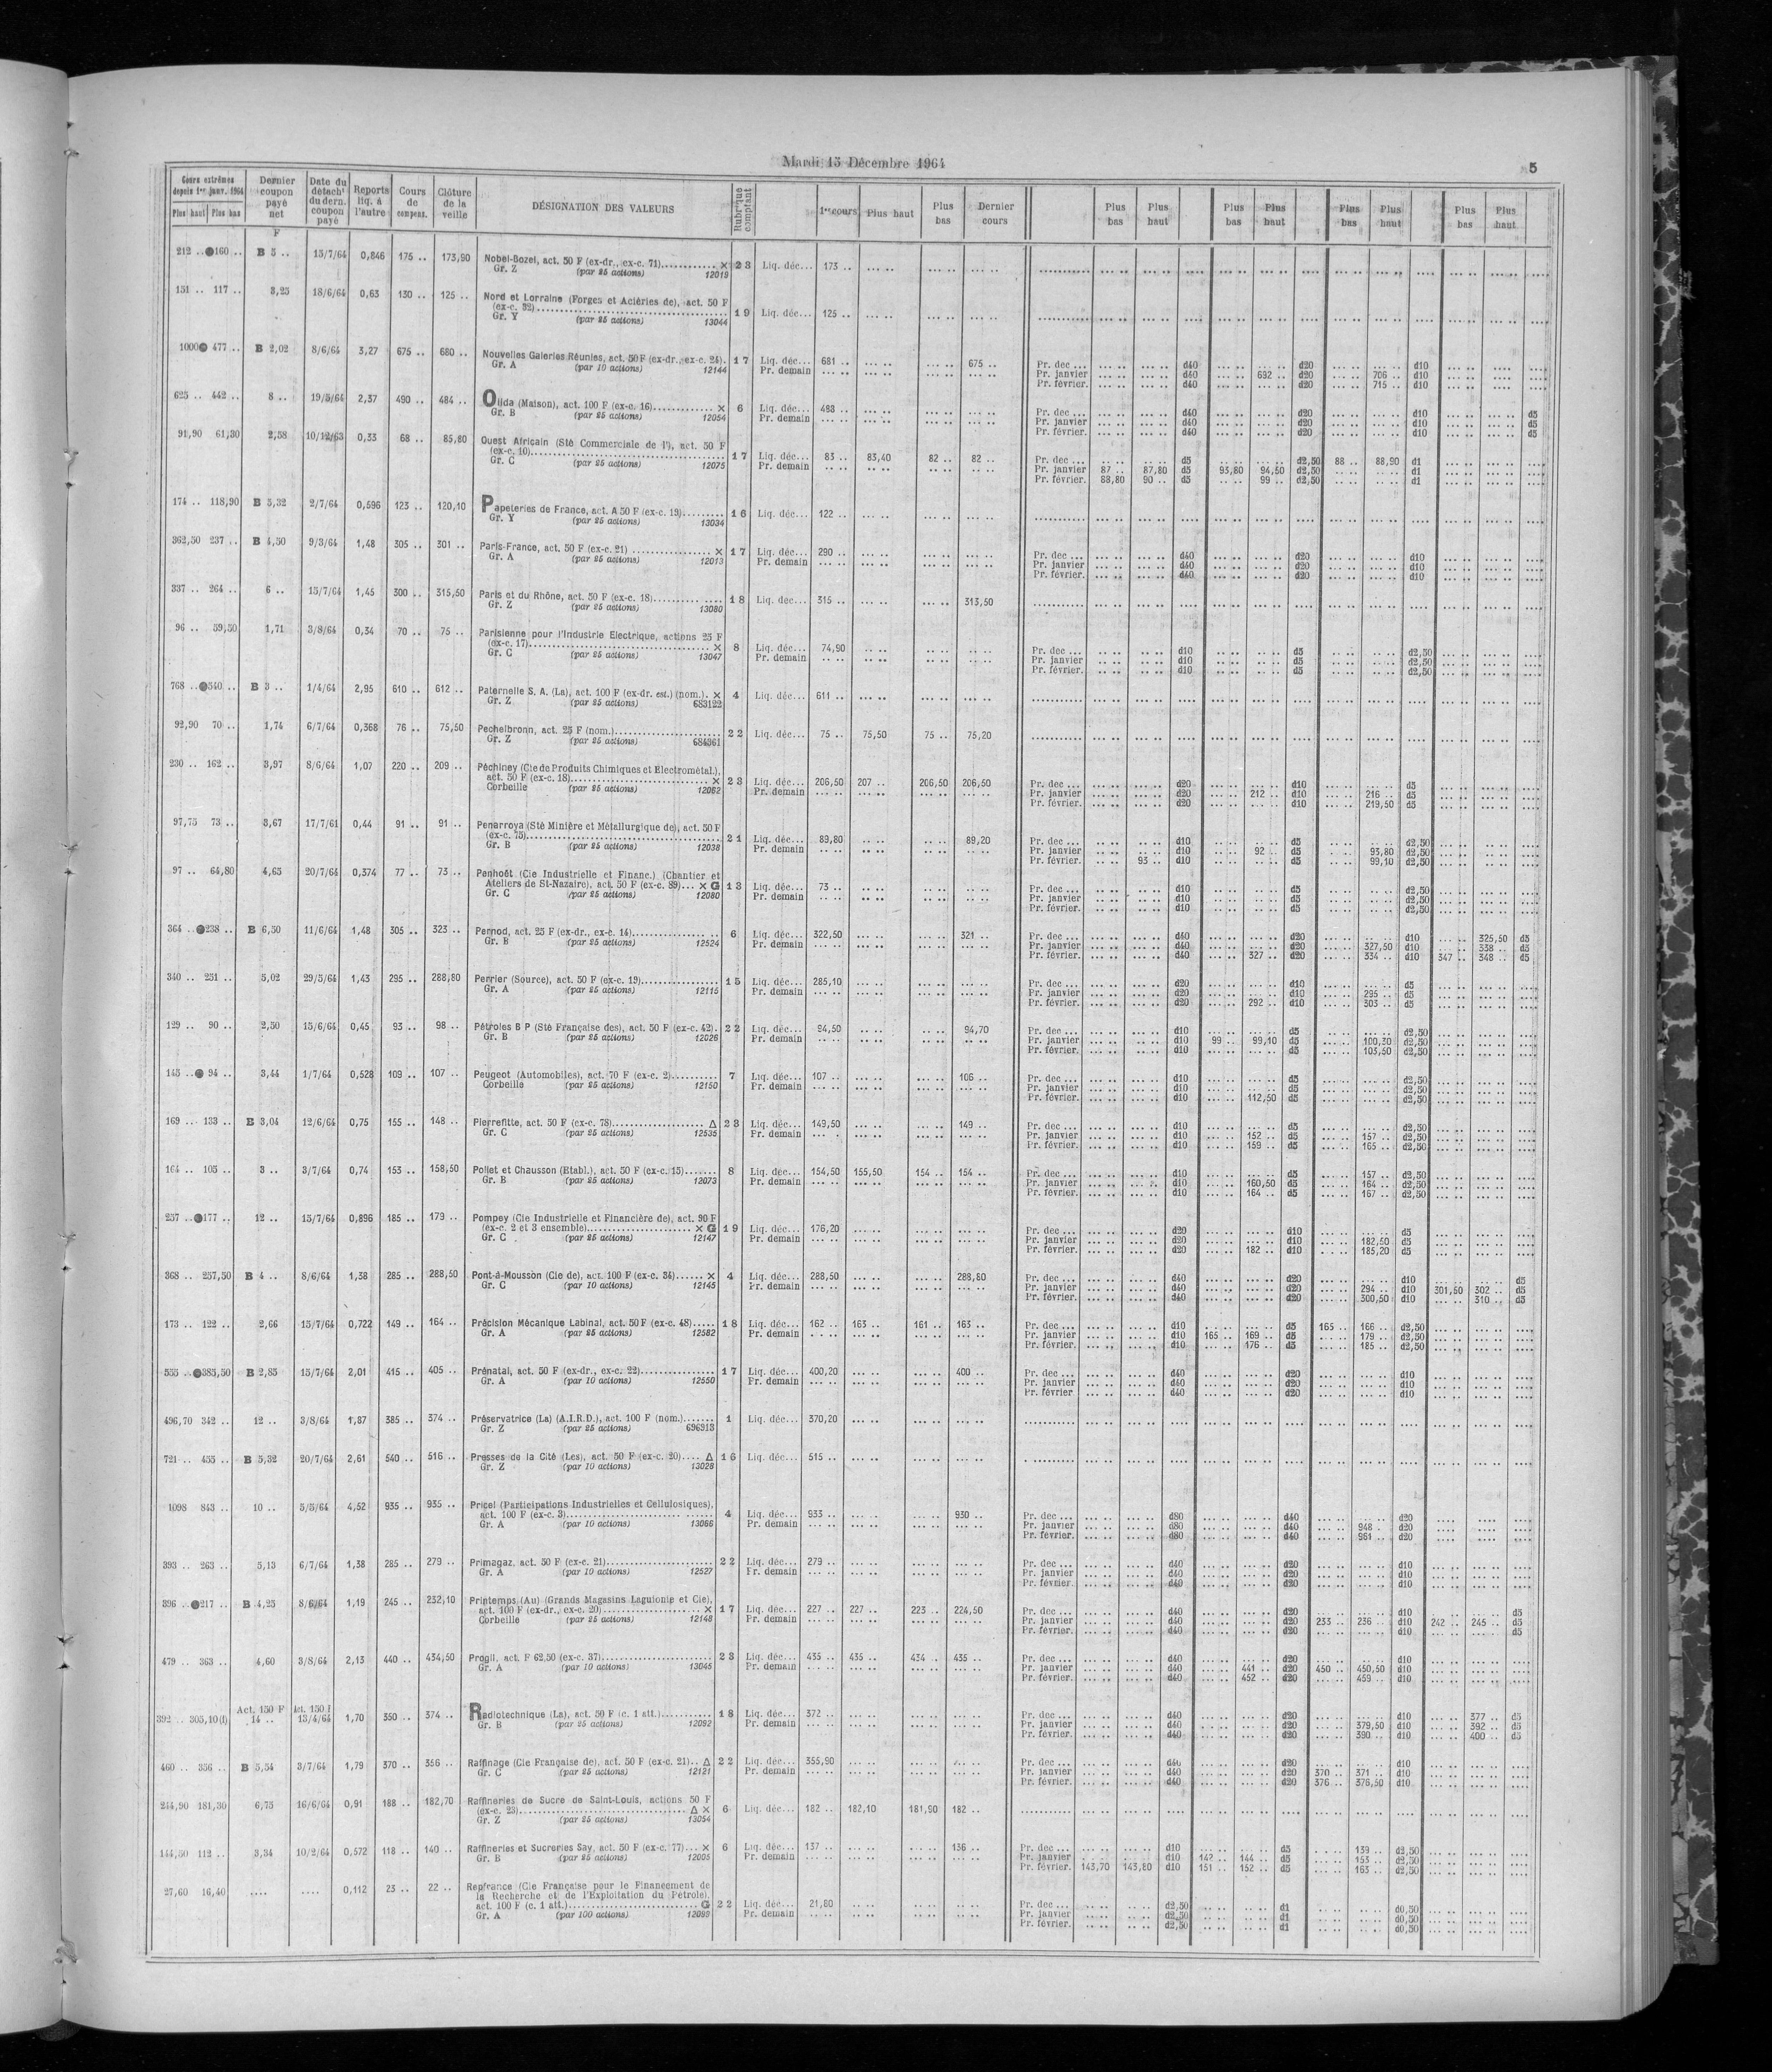 Mardi 15 Décembre 1964
5
Cours extrêmes depuis 1er janv. 1964 Plus haut Plus bas | Dernier coupon payé net | Date du détacht du dern. coupon payé | Reports liq. à l'autre | Cours de compens. | Clôture de la veille | DÉSIGNATION DES VALEURS | Rubrique comptant | 1er cours | Plus haut | Plus bas | Dernier cours | Plus bas | Plus haut | Plus bas | Plus haut | Plus bas | Plus haut | Plus bas | Plus haut
F
212 .. ●160 .. B 5 .. 15/7/64 0,846 175 .. 173,90 Nobel-Bozel, act. 50 F (ex-dr., ex-c. 71) × 23 Liq. déc... 173 ..
Gr. Z (par 25 actions) 12019
151 .. 117 .. 3,25 18/6/64 0,63 130 .. 125 .. Nord et Lorraine (Forges et Aciéries de), act. 50 F
(ex-c. 32) 19 Liq. déc... 125 ..
Gr. Y (par 25 actions) 13044
1000● 477 .. B 2,02 8/6/64 3,27 675 .. 680 .. Nouvelles Galeries Réunies, act. 50 F (ex-dr., ex-c. 24). 17 Liq. déc... 681 .. 675 .. Pr. dec ... d40 d20 d10
Gr. A (par 10 actions) 12144 Pr. demain Pr. janvier d40 692 .. d20 706 .. d10
Pr. février. d40 d20 715 .. d10
625 .. 442 .. 8 .. 19/5/64 2,37 490 .. 484 .. Olida (Maison), act. 100 F (ex-c. 16) × 6 Liq. déc... 488 .. Pr. dec ... d40 d20 d10 d5
Gr. B (par 25 actions) 12054 Pr. demain Pr. janvier d40 d20 d10 d5
Pr. février. d40 d20 d10 d5
91,90 61,30 2,58 10/12/63 0,33 68 .. 85,80 Ouest Africain (Sté Commerciale de l'), act. 50 F
(ex-c. 10) 17 Liq. déc... 83 .. 83,40 82 .. 82 .. Pr. dec ... d5 d2,50 88 .. 88,90 d1
Gr. C (par 25 actions) 12075 Pr. demain Pr. janvier 87 .. 87,80 d5 93,80 94,50 d2,50 d1
Pr. février. 88,80 90 .. d5 99 .. d2,50 d1
174 .. 118,90 B 5,32 2/7/64 0,596 123 .. 120,10 Papeteries de France, act. A 50 F (ex-c. 19) 16 Liq. déc... 122 ..
Gr. Y (par 25 actions) 13034
362,50 237 .. B 4,50 9/3/64 1,48 305 .. 301 .. Paris-France, act. 50 F (ex-c. 21) × 17 Liq. déc... 290 .. Pr. dec ... d40 d20 d10
Gr. A (par 25 actions) 12013 Pr. demain Pr. janvier d40 d20 d10
Pr. février. d40 d20 d10
337 .. 264 .. 6 .. 15/7/64 1,45 300 .. 315,50 Paris et du Rhône, act. 50 F (ex-c. 18) 18 Liq. dec... 315 .. 313,50
Gr. Z (par 25 actions) 13080
96 .. 59,50 1,71 3/8/64 0,34 70 .. 75 .. Parisienne pour l'Industrie Electrique, actions 25 F
(ex-c. 17) × 8 Liq. déc... 74,90 Pr. dec ... d10 d5 d2,50
Gr. C (par 25 actions) 13047 Pr. demain Pr. janvier d10 d5 d2,50
Pr. février. d10 d5 d2,50
768 .. ●540 .. B 3 .. 1/4/64 2,95 610 .. 612 .. Paternelle S. A. (La), act. 100 F (ex-dr. est.) (nom.). × 4 Liq. déc... 611 ..
Gr. Z (par 25 actions) 683122
92,90 70 .. 1,74 6/7/64 0,368 76 .. 75,50 Pechelbronn, act. 25 F (nom.) 22 Liq. déc... 75 .. 75,50 75 .. 75,20
Gr. Z (par 25 actions) 684361
230 .. 162 .. 3,97 8/6/64 1,07 220 .. 209 .. Péchiney (Cie de Produits Chimiques et Électrométal.),
act. 50 F (ex-c. 18) × 23 Liq. déc... 206,50 207 .. 206,50 206,50 Pr. dec ... d20 d10 d5
Corbeille (par 25 actions) 12062 Pr. demain Pr. janvier d20 212 .. d10 216 .. d5
Pr. février. d20 d10 219,50 d5
97,75 73 .. 3,67 17/7/61 0,44 91 .. 91 .. Penarroya (Sté Minière et Métallurgique de), act. 50 F
(ex-c. 75) 21 Liq. déc... 89,80 89,20 Pr. dec ... d10 d5 d2,50
Gr. B (par 25 actions) 12038 Pr. demain Pr. janvier d10 92 .. d5 93,80 d2,50
Pr. février. 93 .. d10 d5 99,10 d2,50
97 .. 64,80 4,65 20/7/64 0,374 77 .. 73 .. Penhoët (Cie Industrielle et Financ.) (Chantier et
Ateliers de St-Nazaire), act. 50 F (ex-c. 89)... × G 13 Liq. déc... 73 .. Pr. dec ... d10 d5 d2,50
Gr. C (par 25 actions) 12080 Pr. demain Pr. janvier d10 d5 d2,50
Pr. février. d10 d5 d2,50
364 .. ●238 .. B 6,50 11/6/64 1,48 305 .. 323 .. Pernod, act. 25 F (ex-dr., ex-c. 14) 6 Liq. déc... 322,50 321 .. Pr. dec ... d40 d20 d10 325,50 d5
Gr. B (par 25 actions) 12524 Pr. demain Pr. janvier d40 d20 327,50 d10 338 .. d5
Pr. février. d40 327 .. d20 334 .. d10 347 .. 348 .. d5
340 .. 251 .. 5,02 29/5/64 1,43 295 .. 288,80 Perrier (Source), act. 50 F (ex-c. 19) 15 Liq. déc... 285,10 Pr. dec ... d20 d10 d5
Gr. A (par 25 actions) 12115 Pr. demain Pr. janvier d20 d10 295 .. d5
Pr. février. d20 292 .. d10 303 .. d5
129 .. 90 .. 2,50 15/6/64 0,45 93 .. 98 .. Pétroles B P (Sté Française des), act. 50 F (ex-c. 42). 22 Liq. déc... 94,50 94,70 Pr. dec ... d10 d5 d2,50
Gr. B (par 25 actions) 12026 Pr. demain Pr. janvier d10 99 .. 99,10 d5 100,30 d2,50
Pr. février. d10 d5 103,50 d2,50
145 .. ● 94 .. 3,44 1/7/64 0,528 109 .. 107 .. Peugeot (Automobiles), act. 70 F (ex-c. 2) 7 Liq. déc... 107 .. 106 .. Pr. dec ... d10 d5 d2,50
Corbeille (par 25 actions) 12150 Pr. demain Pr. janvier d10 d5 d2,50
Pr. février. d10 112,50 d5 d2,50
169 .. 133 .. B 3,04 12/6/64 0,75 155 .. 148 .. Pierrefitte, act. 50 F (ex-c. 78) Δ 23 Liq. déc... 149,50 149 .. Pr. dec ... d10 d5 d2,50
Gr. C (par 25 actions) 12535 Pr. demain Pr. janvier d10 152 .. d5 157 .. d2,50
Pr. février. d10 159 .. d5 165 .. d2,50
164 .. 105 .. 3 .. 3/7/64 0,74 153 .. 158,50 Poliet et Chausson (Etabl.), act. 50 F (ex-c. 15) 8 Liq. dec... 154,50 155,50 154 .. 154 .. Pr. dec ... d10 d5 157 .. d2,50
Gr. B (par 25 actions) 12073 Pr. demain Pr. janvier d10 160,50 d5 164 .. d2,50
Pr. février. d10 164 .. d5 167 .. d2,50
257 .. ●177 .. 12 .. 15/7/64 0,896 185 .. 179 .. Pompey (Cie Industrielle et Financière de), act. 90 F
(ex-c. 2 et 3 ensemble) × G 19 Liq. déc... 176,20 Pr. dec ... d20 d10 d5
Gr. C (par 25 actions) 12147 Pr. demain Pr. janvier d20 d10 182,50 d5
Pr. février. d20 182 .. d10 185,20 d5
368 .. 257,50 B 4 .. 8/6/64 1,38 285 .. 288,50 Pont-à-Mousson (Cie de), act. 100 F (ex-c. 34) × 4 Liq. déc... 288,50 288,80 Pr. dec ... d40 d20 d10 d5
Gr. C (par 10 actions) 12145 Pr. demain Pr. janvier d40 d20 294 .. d10 301,50 302 .. d5
Pr. février. d40 d20 300,50 d10 310 .. d5
173 .. 122 .. 2,66 15/7/64 0,722 149 .. 164 .. Précision Mécanique Labinal, act. 50 F (ex-c. 48) 18 Liq. déc... 162 .. 163 .. 161 .. 163 .. Pr. dec ... d10 d5 165 .. 166 .. d2,50
Gr. A (par 25 actions) 12582 Pr. demain Pr. janvier d10 165 .. 169 .. d5 179 .. d2,50
Pr. février. d10 176 .. d5 185 .. d2,50
555 .. ●385,50 B 2,85 15/7/64 2,01 415 .. 405 .. Prénatal, act. 50 F (ex-dr., ex-c. 22) 17 Liq. déc... 400,20 400 .. Pr. dec ... d40 d20 d10
Gr. A (par 10 actions) 12550 Pr. demain Pr. janvier d40 d20 d10
Pr. février d40 d20 d10
496,70 342 .. 12 .. 3/8/64 1,87 385 .. 374 .. Préservatrice (La) (A.I.R.D.), act. 100 F (nom.) 1 Liq. déc... 370,20
Gr. Z (par 25 actions) 696913
721 .. 455 .. B 5,32 20/7/64 2,61 540 .. 516 .. Presses de la Cité (Les), act. 50 F (ex-c. 20) Δ 16 Liq. déc... 515 ..
Gr. Z (par 10 actions) 13028
1098 843 .. 10 .. 5/5/64 4,52 935 .. 935 .. Pricel (Participations Industrielles et Cellulosiques),
act. 100 F (ex-c. 3) 4 Liq. déc... 933 .. 930 .. Pr. dec ... d80 d40 d20
Gr. A (par 10 actions) 13066 Pr. demain Pr. janvier d80 d40 948 .. d20
Pr. février. d80 d40 961 .. d20
393 .. 263 .. 5,13 6/7/64 1,38 285 .. 279 .. Primagaz, act. 50 F (ex-c. 21) 22 Liq. déc... 279 .. Pr. dec ... d40 d20 d10
Gr. A (par 10 actions) 12527 Pr. demain Pr. janvier d40 d20 d10
Pr. février. d40 d20 d10
396 .. ●217 .. B 4,25 8/6/64 1,19 245 .. 232,10 Printemps (Au) (Grands Magasins Laguionie et Cie),
act. 100 F (ex-dr., ex-c. 20) × 17 Liq. déc... 227 .. 227 .. 223 .. 224,50 Pr. dec ... d40 d20 d10 d5
Corbeille (par 25 actions) 12148 Pr. demain Pr. janvier d40 d20 233 .. 236 .. d10 242 .. 245 .. d5
Pr. février. d40 d20 d10 d5
479 .. 363 .. 4,60 3/8/64 2,13 440 .. 434,50 Progil, act. F 62,50 (ex-c. 37) 23 Liq. déc... 435 .. 435 .. 434 .. 435 .. Pr. dec ... d40 d20 d10
Gr. A (par 10 actions) 13045 Pr. demain Pr. janvier d40 441 .. d20 450 .. 450,50 d10
Pr. février. d40 452 .. d20 459 .. d10
392 .. 305,10 (1) Act. 150 F 14 .. Act. 150 F 13/4/64 1,70 350 .. 374 .. Radiotechnique (La), act. 50 F (c. 1 att.) 18 Liq. déc... 372 .. Pr. dec ... d40 d20 d10 377 .. d5
Gr. B (par 25 actions) 12092 Pr. demain Pr. janvier d40 d20 379,50 d10 392 .. d5
Pr. février. d40 d20 390 .. d10 400 .. d5
460 .. 356 .. B 5,54 3/7/64 1,79 370 .. 356 .. Raffinage (Cie Française de), act. 50 F (ex-c. 21).. Δ 22 Liq. déc... 355,90 Pr. dec ... d40 d20 d10
Gr. C (par 25 actions) 12121 Pr. demain Pr. janvier d40 d20 370 .. 371 .. d10
Pr. février. d40 d20 376 .. 376,50 d10
244,90 181,30 6,75 16/6/64 0,91 188 .. 182,70 Raffineries de Sucre de Saint-Louis, actions 50 F
(ex-c. 23) Δ × 6 Liq. déc... 182 .. 182,10 181,90 182 ..
Gr. Z (par 25 actions) 13054
144,50 112 .. 3,34 10/2/64 0,572 118 .. 140 .. Raffineries et Sucreries Say, act. 50 F (ex-c. 77)... × 6 Liq. déc... 137 .. 136 .. Pr. dec ... d10 d5 139 .. d2,50
Gr. B (par 25 actions) 12005 Pr. demain Pr. janvier d10 142 .. 144 .. d5 153 .. d2,50
Pr. février. 143,70 143,80 d10 151 .. 152 .. d5 163 .. d2,50
27,60 16,40 .... .... 0,112 23 .. 22 .. Repfrance (Cie Française pour le Financement de
la Recherche et de l'Exploitation du Pétrole),
act. 100 F (c. 1 att.) G 22 Liq. déc... 21,80 Pr. dec ... d2,50 d1 d0,50
Gr. A (par 100 actions) 12099 Pr. demain Pr. janvier d2,50 d1 d0,50
Pr. février. d2,50 d1 d0,50